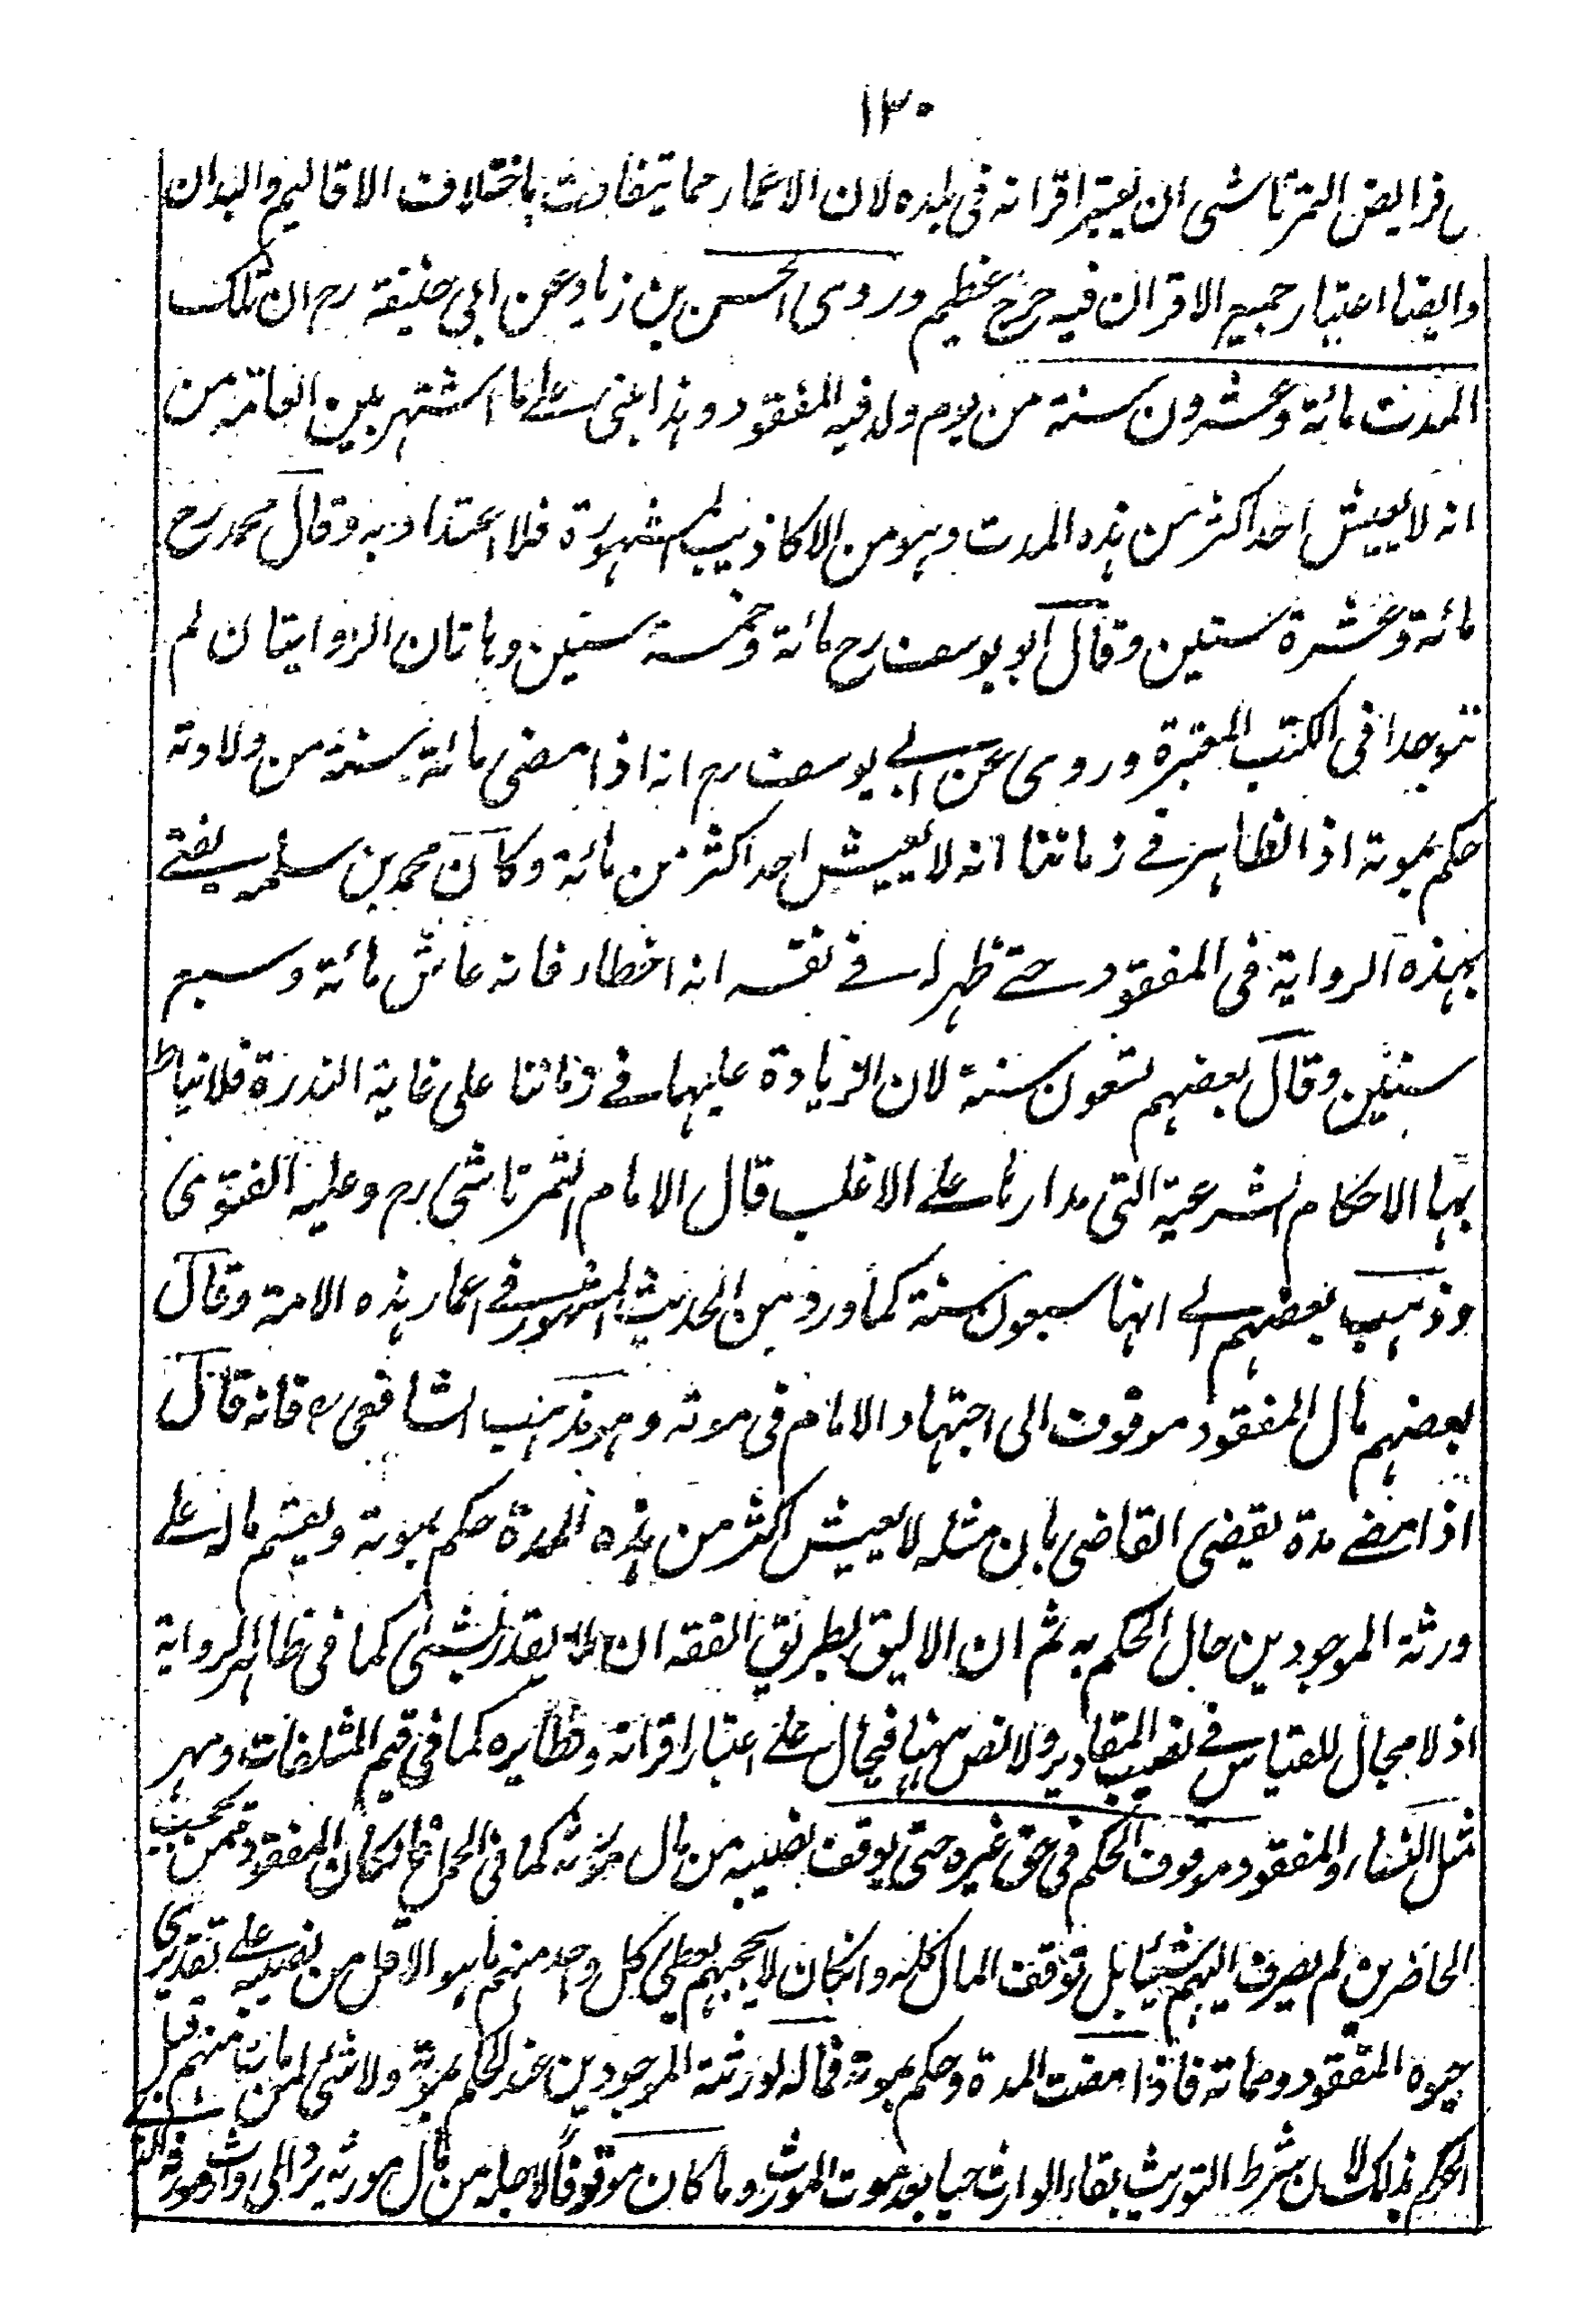 ١٣٠
فرايض التمرتاشى ان يعتبر اقرانه فى بلده لان الاعمار مما يتفاوت باختلاف الاقاليم والبلدان
وايضا اعتبار جميع الاقران فيه حرج عظيم وروى الحسن بن زياد عن ابى حنيفة رح ان تلك
المدت مائة وعشرون سنة من يوم ولد فيه المفقود وهذا مبنى على ما اشتهر بين العامة من
انه لا يعيش احد اكثر من هذه المدت وهو من الاكاذيب المشهورة فلا اعتداد به وقال محمد رح
مائة وعشرة سنين وقال ابو يوسف رح مائة وخمسة سنين وهاتان الروايتان لم
توجدا فى الكتب المعتبرة وروى عن ابى يوسف رح انه اذا مضى مائة سنة من ولادته
حكم بموته اذ الظاهر فى زماننا انه لا يعيش احد اكثر من مائة وكان محمد بن سلمه يفتى
بهذه الرواية فى المفقود حتى ظهر له فى نفسه انه اخطاء فانه عاش مائة وسبع
سنين وقال بعضهم تسعون سنة لان الزيادة عليهما فى زماننا على غاية الندرة فلا نياط
بها الاحكام الشرعية التى مدارها على الاغلب قال الامام التمرتاشى رح وعليه الفتوى
وذهب بعضهم الى انها سبعون سنة كما ورد من الحديث المشهور فى اعمار هذه الامة وقال
بعضهم مال المفقود موقوف الى اجتهاد الامام فى موته وهو مذهب الشافعى رح فانه قال
اذا مضى مدة يقضى القاضى بان مثله لا يعيش اكثر من هذه المدة حكم بموته ويقسم ماله على
ورثة الموجودين حال الحكم به ثم ان الاليق بطريق الفقه ان لا يقدر بشئ كما فى ظاهر الرواية
اذ لا مجال للقياس فى نصب المقادير ولا نص ههنا فيحال على اعتبار اقرانه ونظايره كما فى قيم المتلفات ومهر
مثل النساء والمفقود موقوف الحكم فى حق غيره حتى يوقف نصيبه من مال مورثه كما فى الحمل فان كان المفقود ممن يحجب
الحاضرين لم يصرف اليهم شيئا بل توقف المال كله وانكان لا يحجبهم يعطى كل واحد منهم ما هو الاقل من نصيبه على تقديرى
حيوة المفقود ومماته فاذا مضت المدة وحكم بموته فماله لورثته الموجودين عند الحكم بموته ولا شئ لمن مات منهم قبل
الحكم بذلك لان شرط التوريث بقاء الوارث حيا بعد موت المورث وما كان موقوفا لاجله من مال مورثه يرد الى وارث مورثه الذى